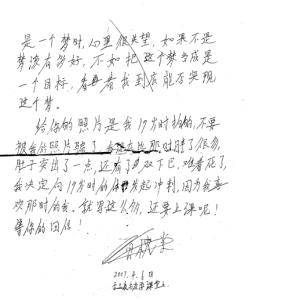 是一个梦时，心里很失望，如果不是
梦该有多好，不如把这个梦当成是
一个目标，看看我到底能否实现
这个梦。
给你的照片是我19岁时拍的，不要
被我的照片骗了，我现在比那时胖了很多，
肚子突出了一点，还有了双下巴，难看死了，
我决定向19岁时的体发起冲刺，因为我喜
欢那时的我。就写这么多，还要上课呢！
等你的回信！
2007.4.6日